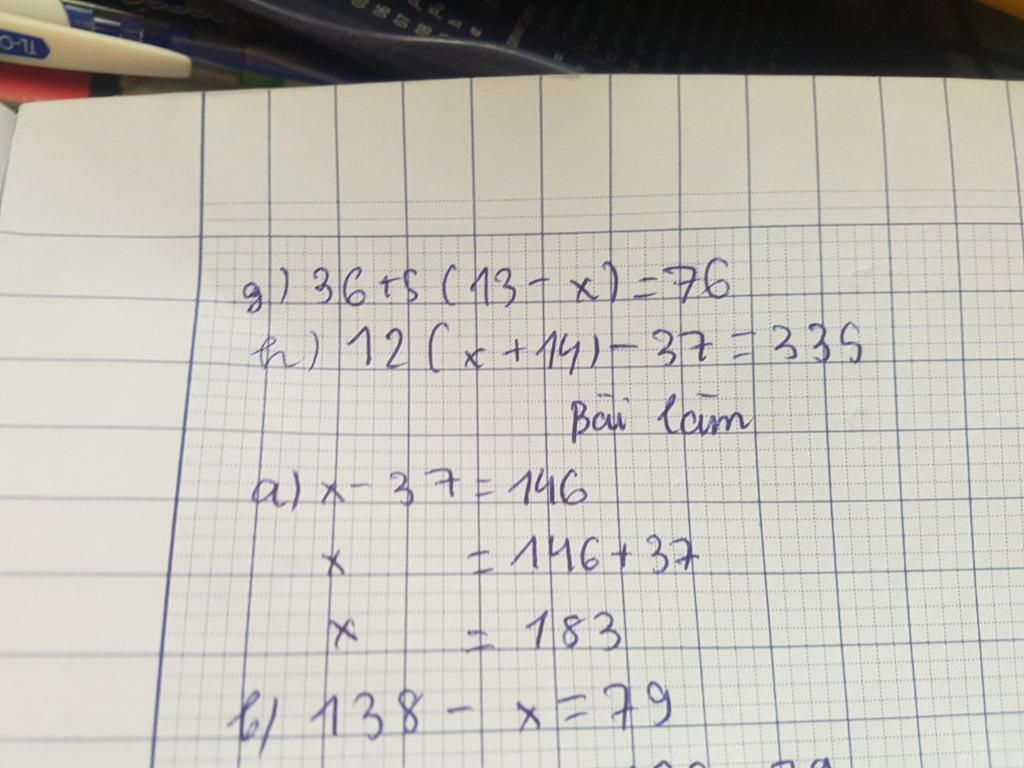 TL-0
g) 36 + 5 (13 - x) = 76
h) 12 (x + 14) - 37 = 335
Bài làm
a) x - 37 = 146
x = 146 + 37
x = 183
b) 138 - x = 79